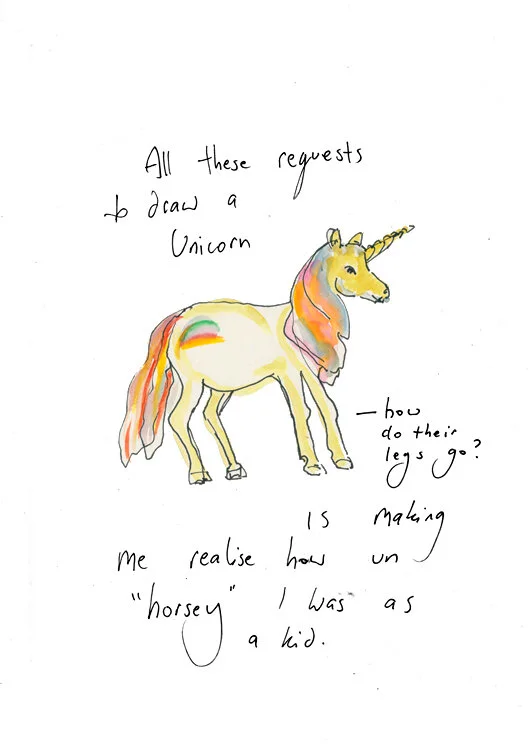 All these requests
to draw a
Unicorn
— how
do their
legs go?
is making
me realise how un
"horsey" I was as
a kid.